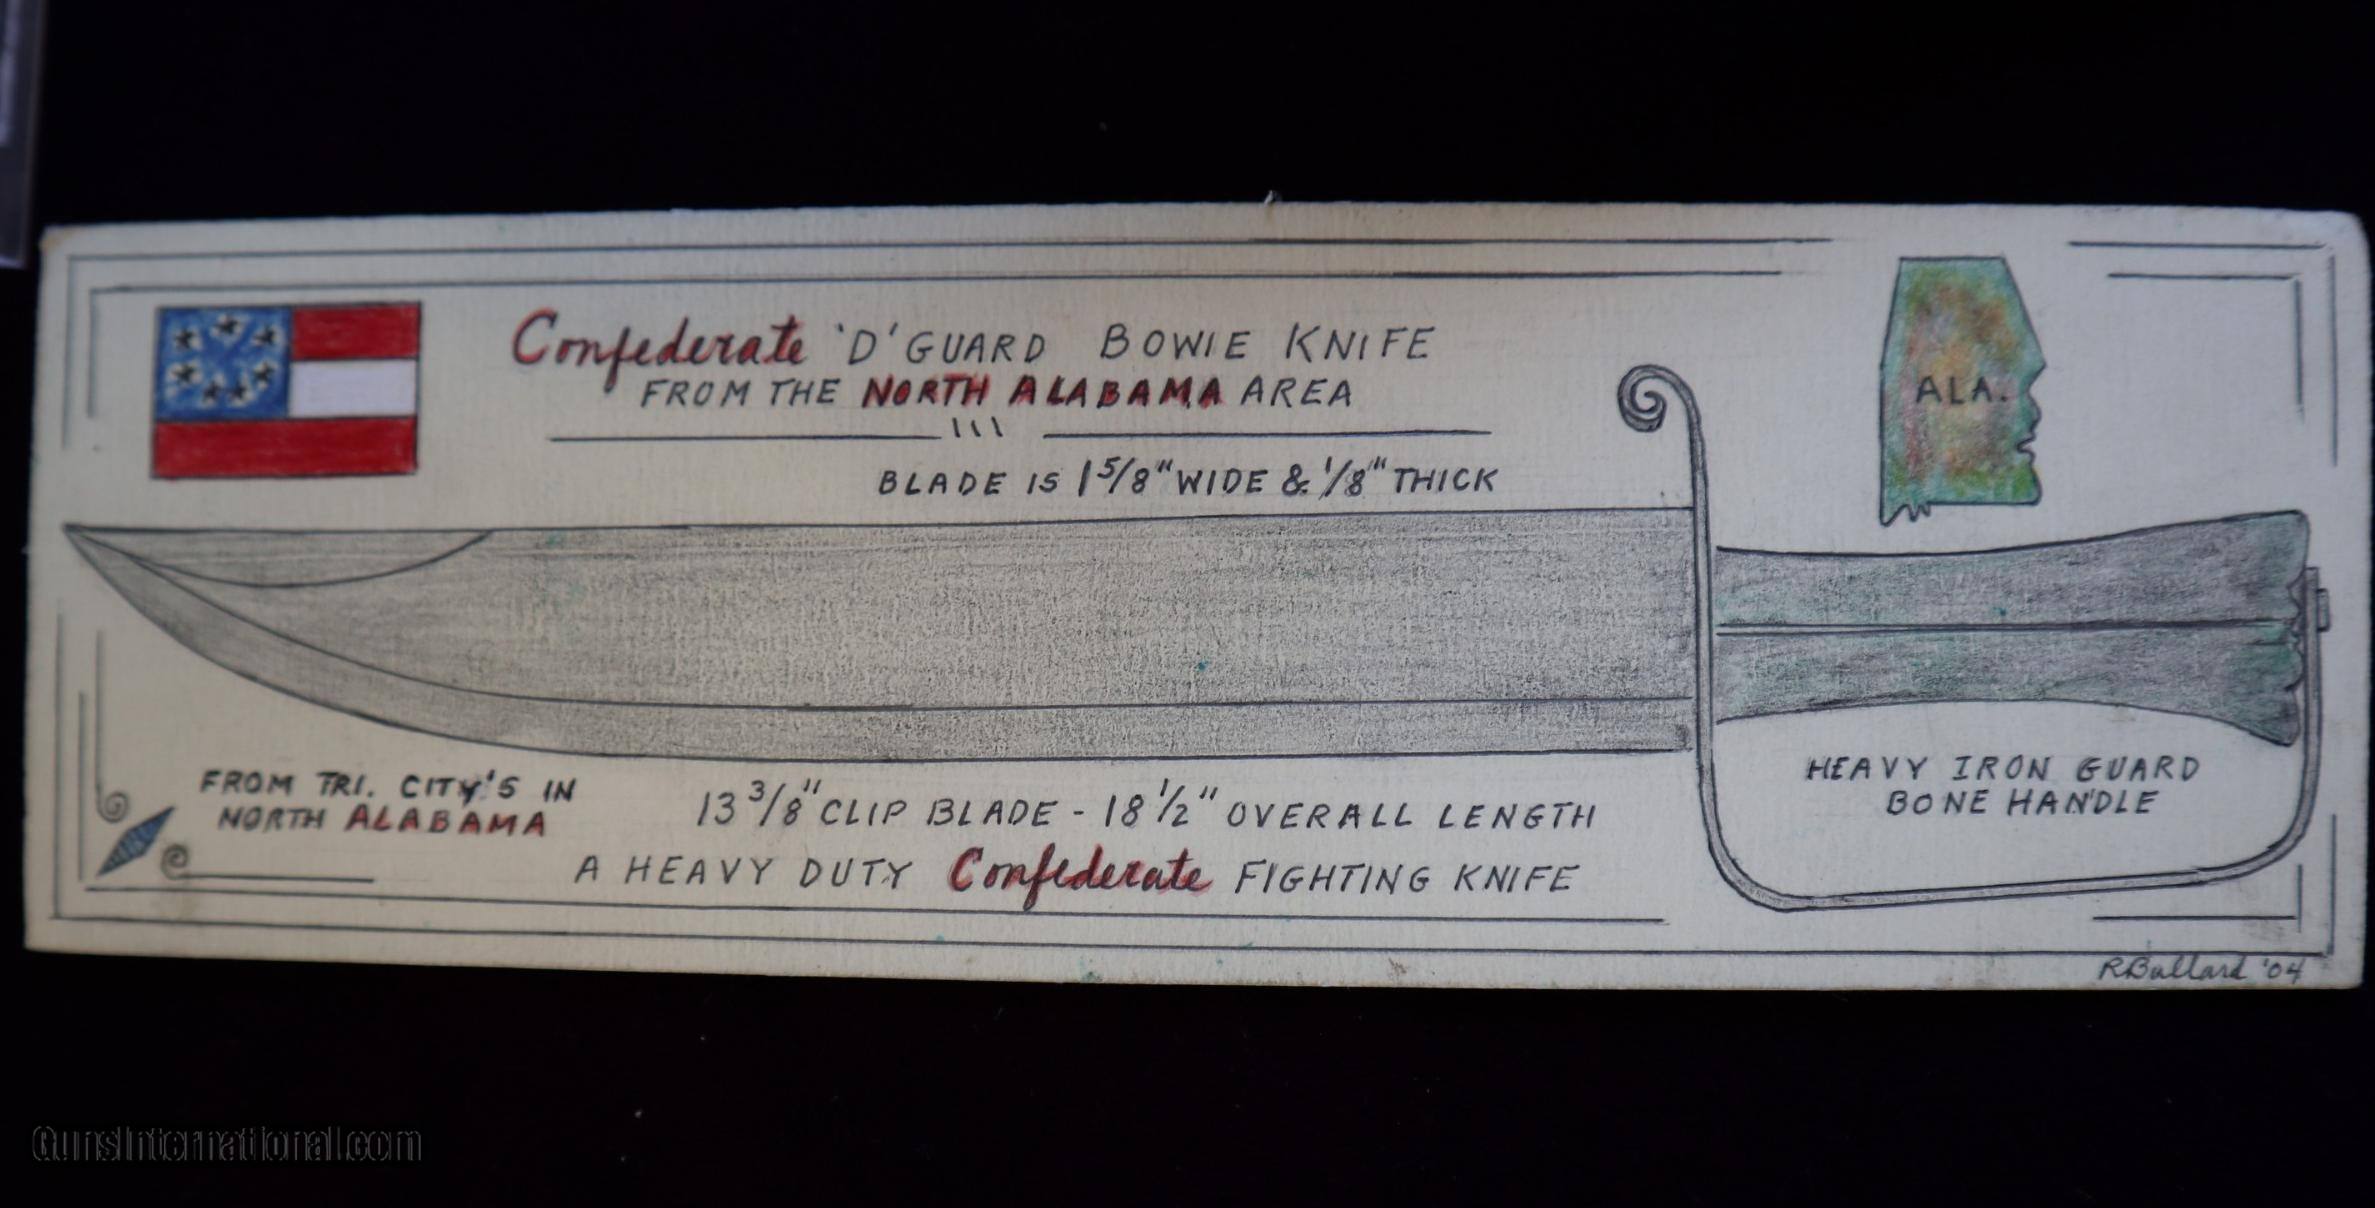 Confederate 'D' GUARD BOWIE KNIFE
FROM THE NORTH ALABAMA AREA
ALA.
BLADE IS 1 5/8" WIDE & 1/8" THICK
HEAVY IRON GUARD
BONE HANDLE
FROM TRI. CITY'S IN
NORTH ALABAMA
13 3/8" CLIP BLADE - 18 1/2" OVERALL LENGTH
A HEAVY DUTY Confederate FIGHTING KNIFE
RBallard '04
GunsInternational.com